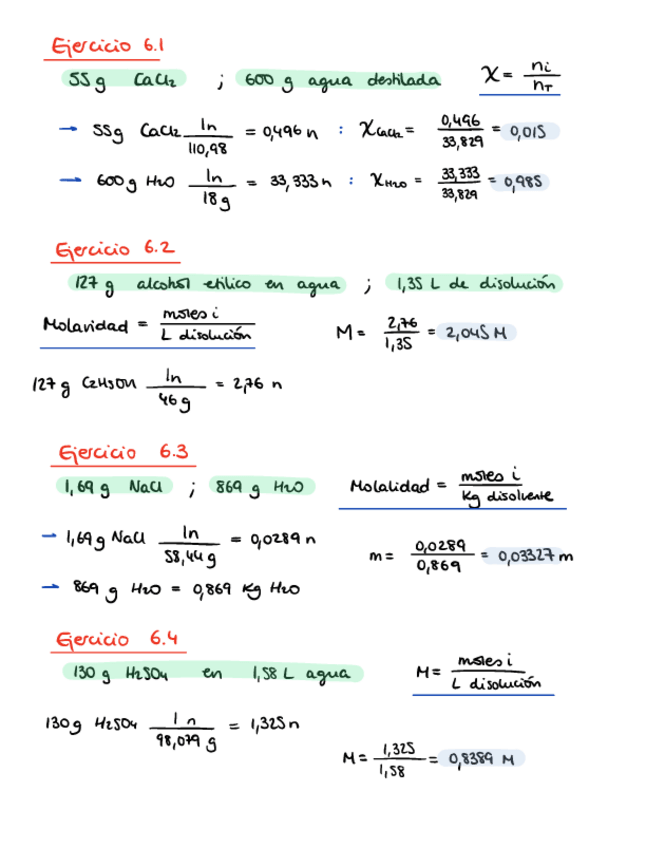 Ejercicio 6.1
55g CaCl2 ; 600 g agua destilada X = ni / nT
→ 55g CaCl2 1n / 110,98 = 0,496 n : XCaCl2 = 0,496 / 33,829 = 0,015
→ 600g H2O 1n / 18g = 33,333 n : XH2O = 33,333 / 33,829 = 0,985
Ejercicio 6.2
127 g alcohol etilico en agua ; 1,35 L de disolución
Molaridad = moles i / L disolución M = 2,76 / 1,35 = 2,045 M
127 g C2H5OH 1n / 46 g = 2,76 n
Ejercicio 6.3
1,69 g NaCl ; 869 g H2O Molalidad = moles i / Kg disolvente
→ 1,69g NaCl 1n / 58,44 g = 0,0289 n
m = 0,0289 / 0,869 = 0,03327 m
→ 869 g H2O = 0,869 Kg H2O
Ejercicio 6.4
130 g H2SO4 en 1,58 L agua M = moles i / L disolución
130g H2SO4 1n / 98,079 g = 1,325 n
M = 1,325 / 1,58 = 0,8389 M